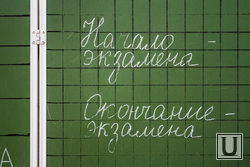 Начало -
экзамена
Окончание -
экзамена
А
U